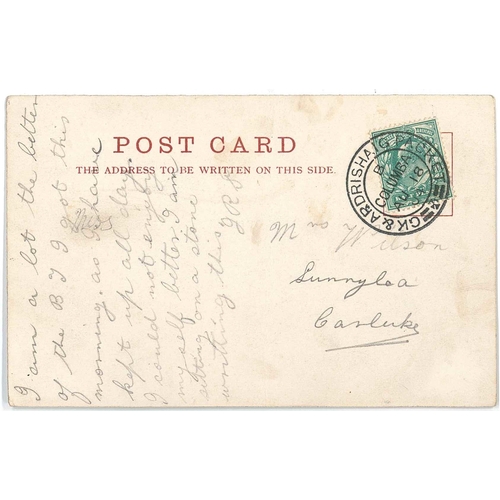 POST CARD
THE ADDRESS TO BE WRITTEN ON THIS SIDE.
GK & ARDRISHAIG PACKET
B
COLUMBA
AU 18
Mrs Wilson
Sunnylea
Carluke
I am a lot the better
of the B I got this
morning. as I have
kept up all day.
I could not enjoy
myself better. I am
sitting on a stone
writing this
Miss